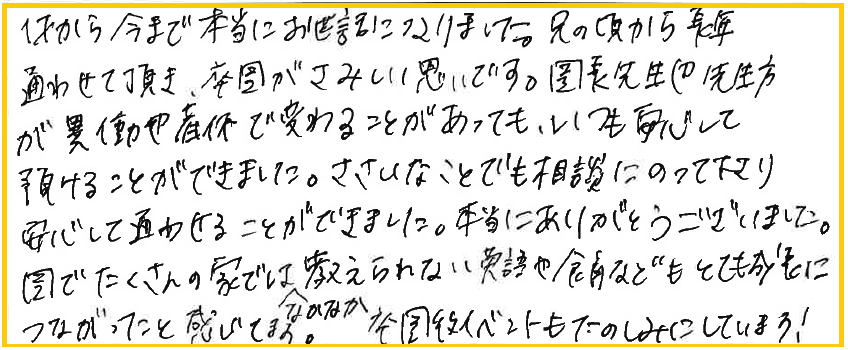 0才から今まで本当にお世話になりました。兄の頃から長年
通わせて頂き、卒園がさみしい思いです。園長先生や先生方
が異動や産休で変わることがあっても、いつも安心して
預けることができました。ささいなことでも相談にのって下さり
安心して通わせることができました。本当にありがとうございました。
園でたくさんの家ではなかなか教えられない英語や食育などもとても成長に
つながったこと感じてます。 卒園後イベントもたのしみにしています!